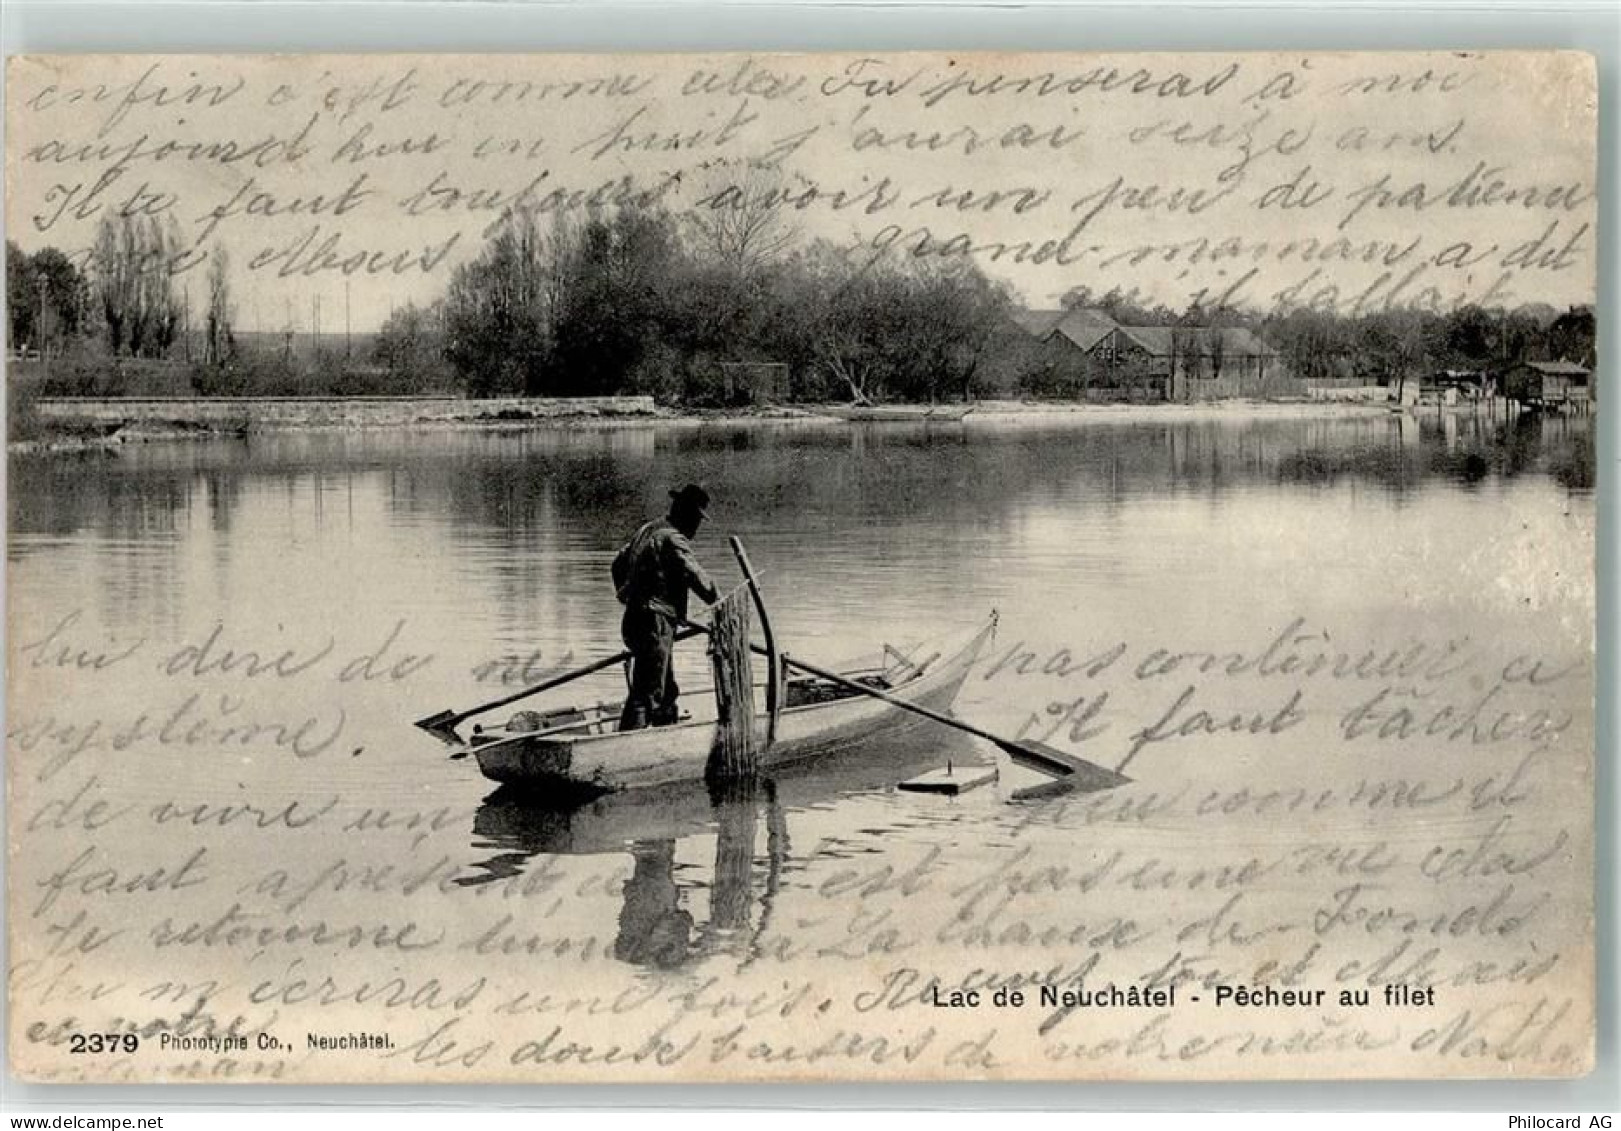 enfin c'est comme cela. Tu penseras à moi
aujourd hui en huit j'aurai seize ans.
Il te faut toujours avoir un peu de patience
grand-maman a dit
qu'il fallait
lui dire de ne pas continuer ce
système. Il faut tâcher
de vivre un peu comme il
faut après est pas une vie cela
Je retourne lundi à La Chaux-de-Fonds
Tu m'écriras une fois. Recevez toi et Alexis
Lac de Neuchâtel - Pêcheur au filet
et votre
2379 Phototypie Co., Neuchâtel.
les doux baisers de votre
www.delcampe.net
Philocard AG